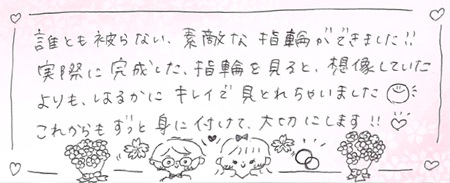 誰とも被らない、素敵な指輪ができました!!
実際に完成した、指輪を見ると、想像していた
よりも、はるかにキレイで見とれちゃいました
これからもずっと身に付けて、大切にします!!